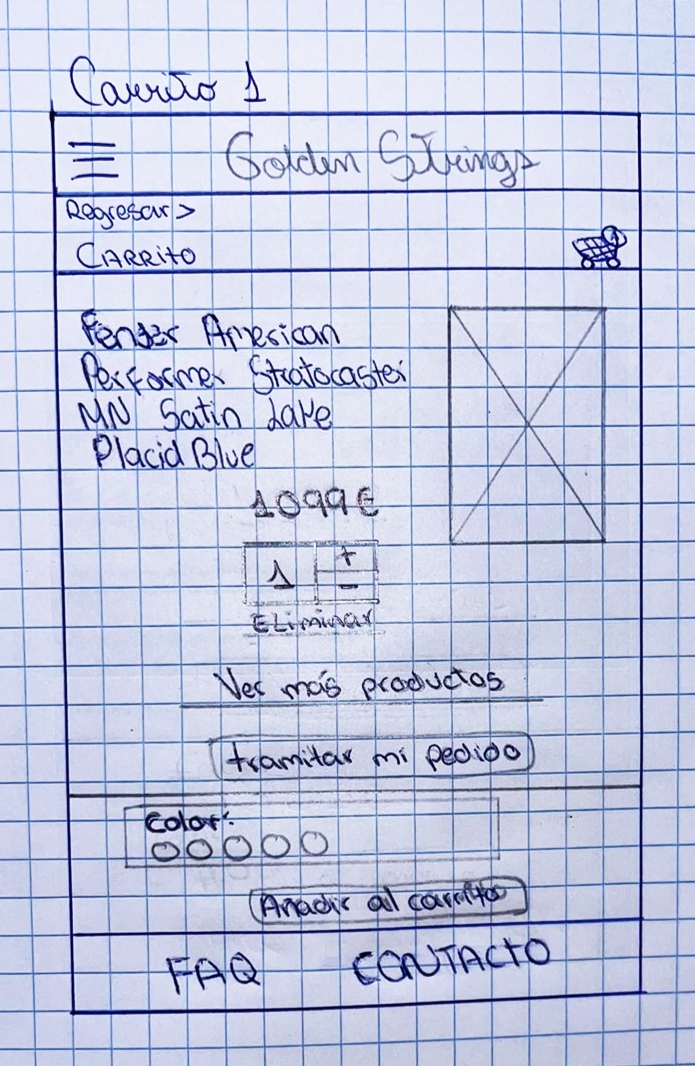 Carrito 1
Golden Strings
Regresar >
CARRITO
1
Fender American
Performer Stratocaster
MN Satin Lake
Placid Blue
1099€
1 + -
Eliminar
Ver más productos
tramitar mi pedido
Color:
Añadir al carrito
FAQ CONTACTO